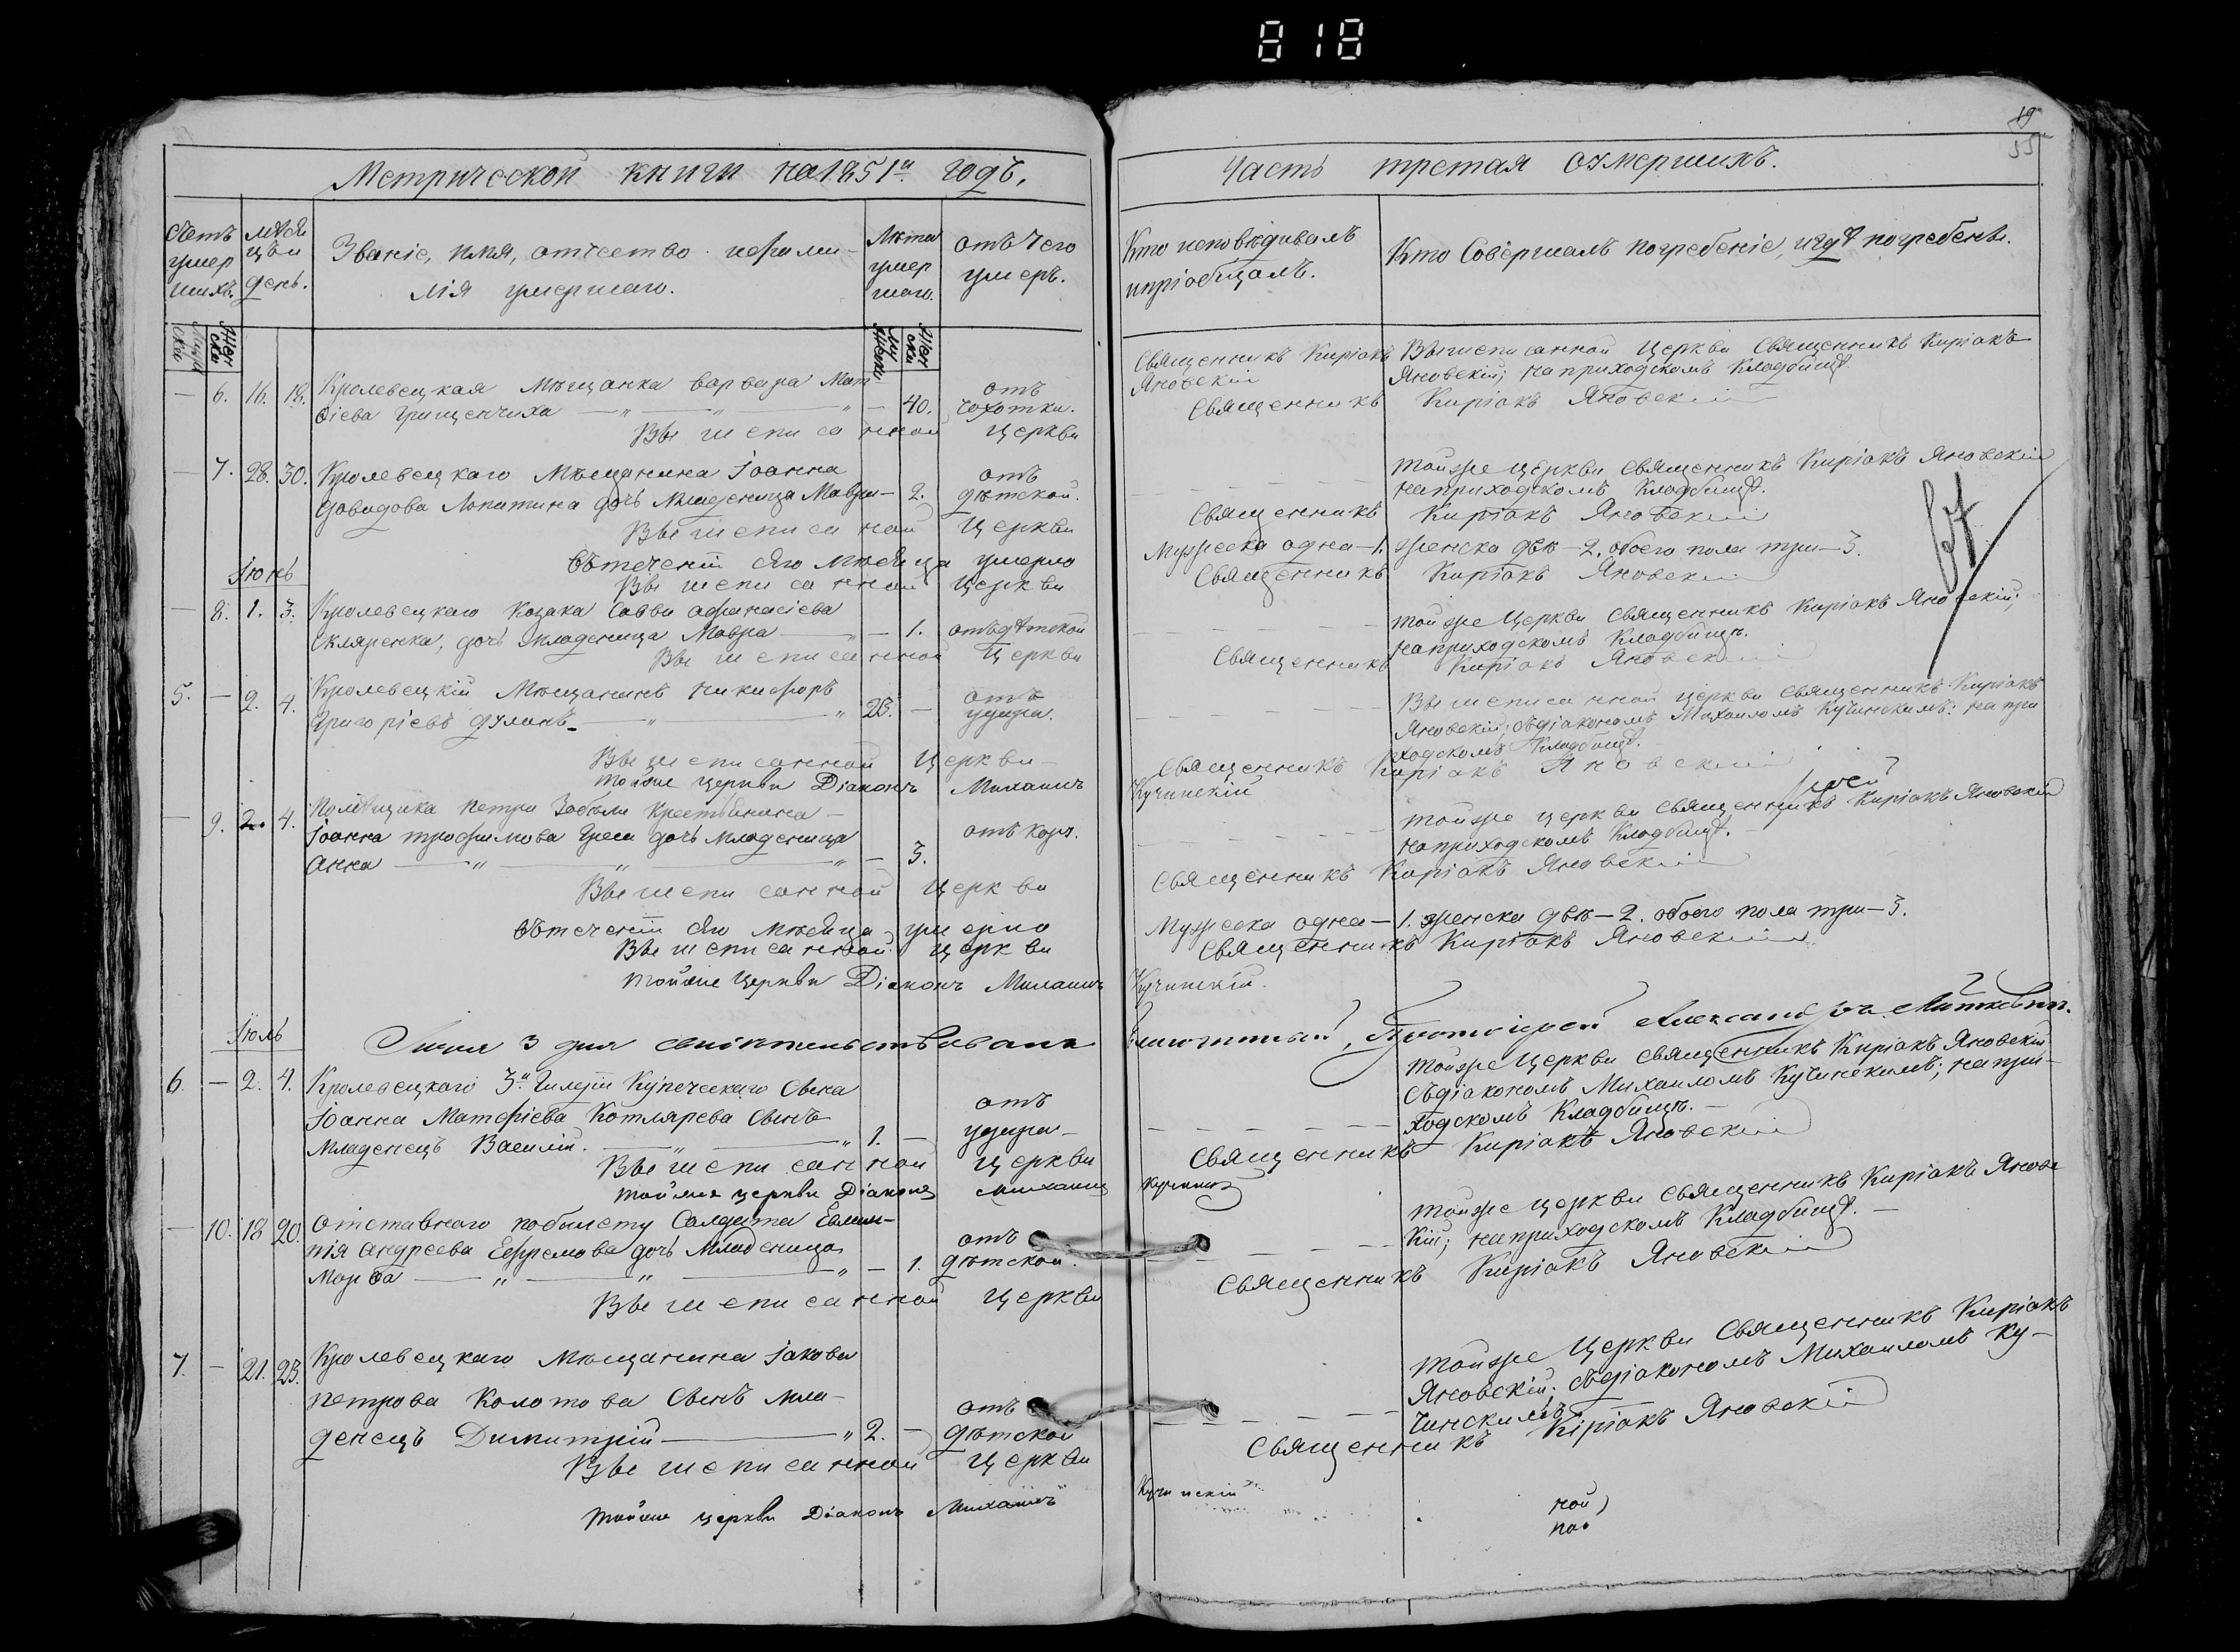 818
19
55
Метрической книги на 1851й годъ.
Счетъ умершихъ.
Мѣсяцъ и день.
Званіе, имя, отчество и фамилія умершаго.
Лѣта умершаго.
отъ чего умеръ.
Мужска
Женска
Мужеска
Женска
6. 16. 18. Кролевецкая Мѣщанка варвара Мат
ѳіева Грищенчиха 40. отъ чохотки.
Вышеписанной Церкви
7. 28. 30. Кролевецкаго Мѣщанина Іоанна
Давидова Лопатина дочь Младеница Мавра 2. отъ дѣтской.
Вышеписаной Церкви
Втеченіи сего Мѣсяца умерло
Вышеписанной Церкви
Іюнь
8. 1. 3. Кролевецкаго Козака Саввы Афанасіева
Скляренка, дочь младеница Мавра 1. отъ дѣтской
Вышеписанной Церкви
5. 2. 4. Кролевецкій Мѣщанинъ Никифоръ
Григоріевъ 25. отъ удара.
Вышеписанной Церкви
Тойже церкви Діаконъ Михаилъ
9. 2. 4. Помѣщика Петра Забѣлы Крестьянина
Іоанна Трофимова дочь младеница
Анна 3. отъ кори.
Вышеписанной Церкви
Втеченіи сего мѣсяца умерло
Вышеписанной церкви
Тойже Церкви Діаконъ Михаилъ
Іюль
Іюля 3 дня свидѣтельствовалъ
6. 2. 4. Кролевецкаго 3й Гильдіи Купеческаго Сына
Іоанна Матфіева Котлярева Сынъ
Младенецъ Василій. 1. отъ удара
Вышеписанной Церкви
Тойже церкви Діаконъ Михаилъ
10. 18 20. Отставнаго побилету Салдата
Андреева Ефремова дочь Младеница
Марѳа 1. отъ дѣтской.
Вышеписанной Церкви
7. 21. 23. Кролевецкаго Мѣщанина Іакова
Петрова Колотова Сынъ мла-
денецъ Димитрій 2. отъ дѣтской
Вышеписанной Церкви
Тойже церкви Діаконъ Михаилъ
Часть третая оумершихъ.
Кто исповѣдывалъ и пріобщалъ.
Кто Совершалъ погребеніе, и гдѣ погребены.
Священникъ Киріакъ Яновскій
Вышеписанной Церкви Священникъ Киріакъ
Яновскій; на приходскомъ Кладбищѣ.
Священникъ Киріакъ Яновскій
Тойже Церкви Священникъ Киріакъ Яновскій
на приходскомъ Кладбищѣ.
Священникъ Киріакъ Яновскій
Мужеска одна—1. женска двѣ—2. обоего пола три—3.
Священникъ Киріакъ Яновскій
Тойже Церкви Священникъ Киріакъ Яновскій;
на приходскомъ Кладбищѣ.
Священникъ Киріакъ Яновскій
Вышеписанной Церкви Священникъ Киріакъ
Яновскій; съдіакономъ Михаиломъ Кучинскимъ: на при
ходскомъ Кладбищѣ.
Священникъ Киріакъ Яновскій
Кучинскій
Тойже церкви Священникъ Киріакъ Яновскій
на приходскомъ Кладбищѣ.
Священникъ Киріакъ Яновскій
Мужеска одна—1. женска двѣ—2. обоего пола три—3.
Священникъ Киріакъ Яновскій
Кучинскій.
Протоіерей Александръ
Тойже Церкви Священникъ Киріакъ Яновскій
съдіакономъ Михаиломъ Кучинскимъ; на при-
ходскомъ Кладбищѣ.
Священникъ Киріакъ Яновскій
Кучинскій
Тойже Церкви Священникъ Киріакъ Яновс
кій; на приходскомъ Кладбищѣ.
Священникъ Киріакъ Яновскій
Тойже Церкви Священникъ Киріакъ
Яновскій; съдіакономъ Михаиломъ Ку-
чинскимъ
Священникъ Киріакъ Яновскій
Кучинскій